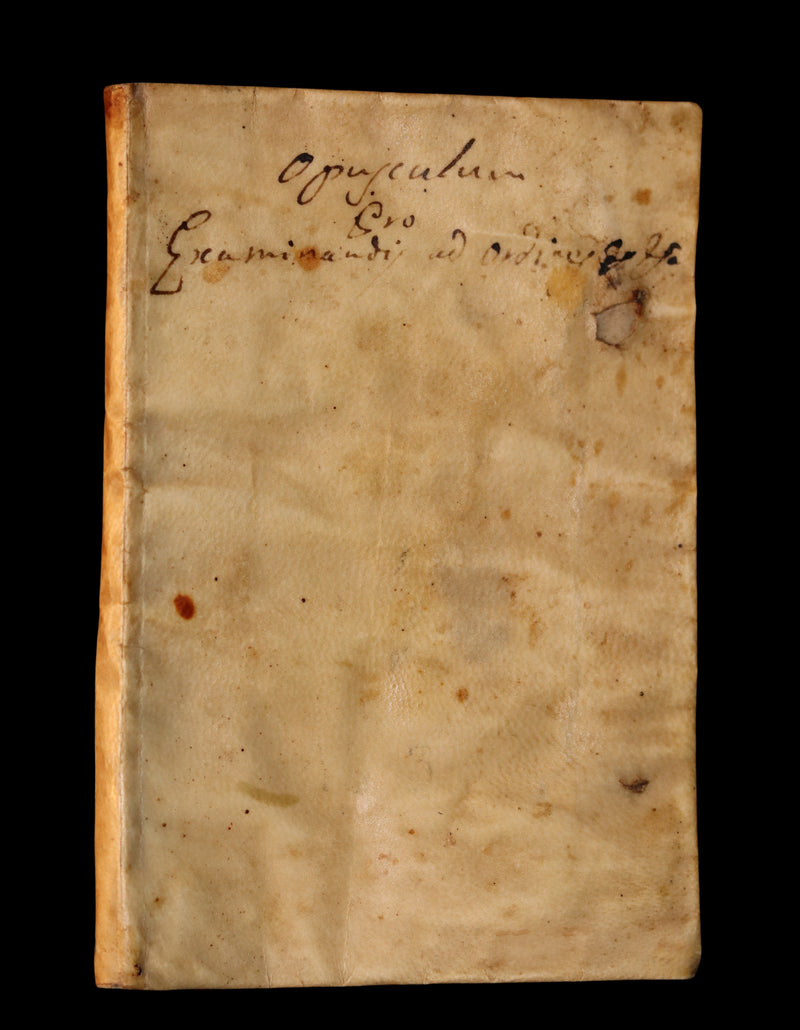 Opusculum
Pro
Examinandis ad Ordines